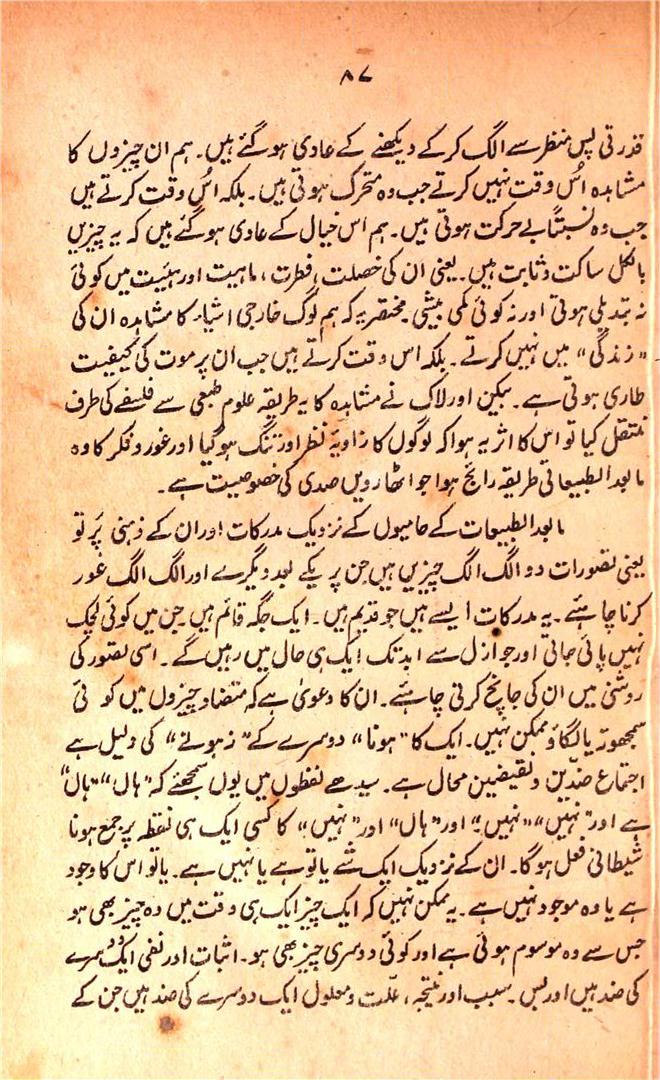 ۸۷
قدرتی پس منظر سے الگ کر کے دیکھنے کے عادی ہو گئے ہیں۔ ہم ان چیزوں کا
مشاہدہ اُس وقت نہیں کرتے جب وہ متحرک ہوتی ہیں۔ بلکہ اُس وقت کرتے ہیں
جب وہ نسبتاً بے حرکت ہوتی ہیں۔ ہم اس خیال کے عادی ہو گئے ہیں کہ یہ چیزیں
بالکل ساکت و ثابت ہیں۔ یعنی ان کی خصلت، فطرت، ماہیت اور ہئیت میں کوئی
نہ تبدیلی ہوتی اور نہ کوئی کمی بیشی۔ مختصر یہ کہ ہم لوگ خارجی اشیاء کا مشاہدہ ان کی
"زندگی" میں نہیں کرتے۔ بلکہ اس وقت کرتے ہیں جب ان پر موت کی کیفیت
طاری ہوتی ہے۔ بیکن اور لاک نے مشاہدہ کا یہ طریقہ علوم طبعی سے فلسفے کی طرف
منتقل کیا تو اس کا اثر یہ ہوا کہ لوگوں کا زاویۂ نظر اور تنگ ہو گیا اور غور و فکر کا وہ
مابعد الطبیعاتی طریقہ رائج ہوا جو اٹھارویں صدی کی خصوصیت ہے۔
مابعد الطبیعات کے حامیوں کے نزدیک مدرکات اور ان کے ذہنی پَرتو
یعنی تصورات دو الگ الگ چیزیں ہیں جن پر یکے بعد دیگرے اور الگ الگ غور
کرنا چاہئے۔ یہ مدرکات ایسے ہیں جو قدیم ہیں۔ ایک جگہ قائم ہیں جن میں کوئی لچک
نہیں پائی جاتی اور جو ازل سے ابد تک ایک ہی حال میں رہیں گے۔ اسی تصور کی
روشنی میں ان کی جانچ کرتی چاہئے۔ ان کا دعویٰ ہے کہ متضاد چیزوں میں کوئی
سمجھوتہ یا لگاؤ ممکن نہیں۔ ایک کا "ہونا" دوسرے کے "نہ ہونے" کی دلیل ہے
اجتماع ضدّین و نقیضین محال ہے۔ سیدھے لفظوں میں یوں سمجھئے کہ "ہاں" "ہاں"
ہے اور "نہیں" "نہیں" اور "ہاں" اور "نہیں" کا کسی ایک ہی نقطہ پر جمع ہونا
شیطانی فعل ہوگا۔ ان کے نزدیک ایک شے یا تو ہے یا نہیں ہے۔ یا تو اس کا وجود
ہے یا وہ موجود نہیں ہے۔ یہ ممکن نہیں کہ ایک چیز ایک ہی وقت میں وہ چیز بھی ہو
جس سے وہ موسوم ہوئی ہے اور کوئی دوسری چیز بھی ہو۔ اثبات اور نفی ایک دوسرے
کی ضد ہیں اور بس۔ سبب اور نتیجہ، علّت و معلول ایک دوسرے کی ضد ہیں جن کے